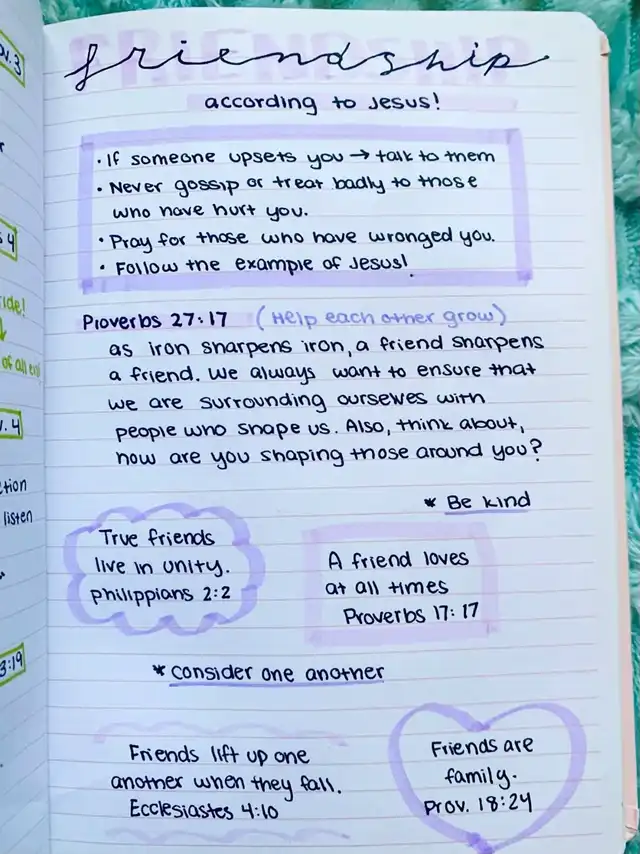 friendship
FRIENDSHIP
according to Jesus!
• If someone upsets you → talk to them
• Never gossip or treat badly to those
who have hurt you.
• Pray for those who have wronged you.
• Follow the example of Jesus!
Proverbs 27:17 (Help each other grow)
as iron sharpens iron, a friend sharpens
a friend. We always want to ensure that
we are surrounding ourselves with
people who shape us. Also, think about,
how are you shaping those around you?
* Be kind
True friends
live in unity.
Philippians 2:2
A friend loves
at all times
Proverbs 17:17
* consider one another
Friends lift up one
another when they fall.
Ecclesiastes 4:10
Friends are
family.
Prov. 18:24
v. 4
of all
listen
3:19